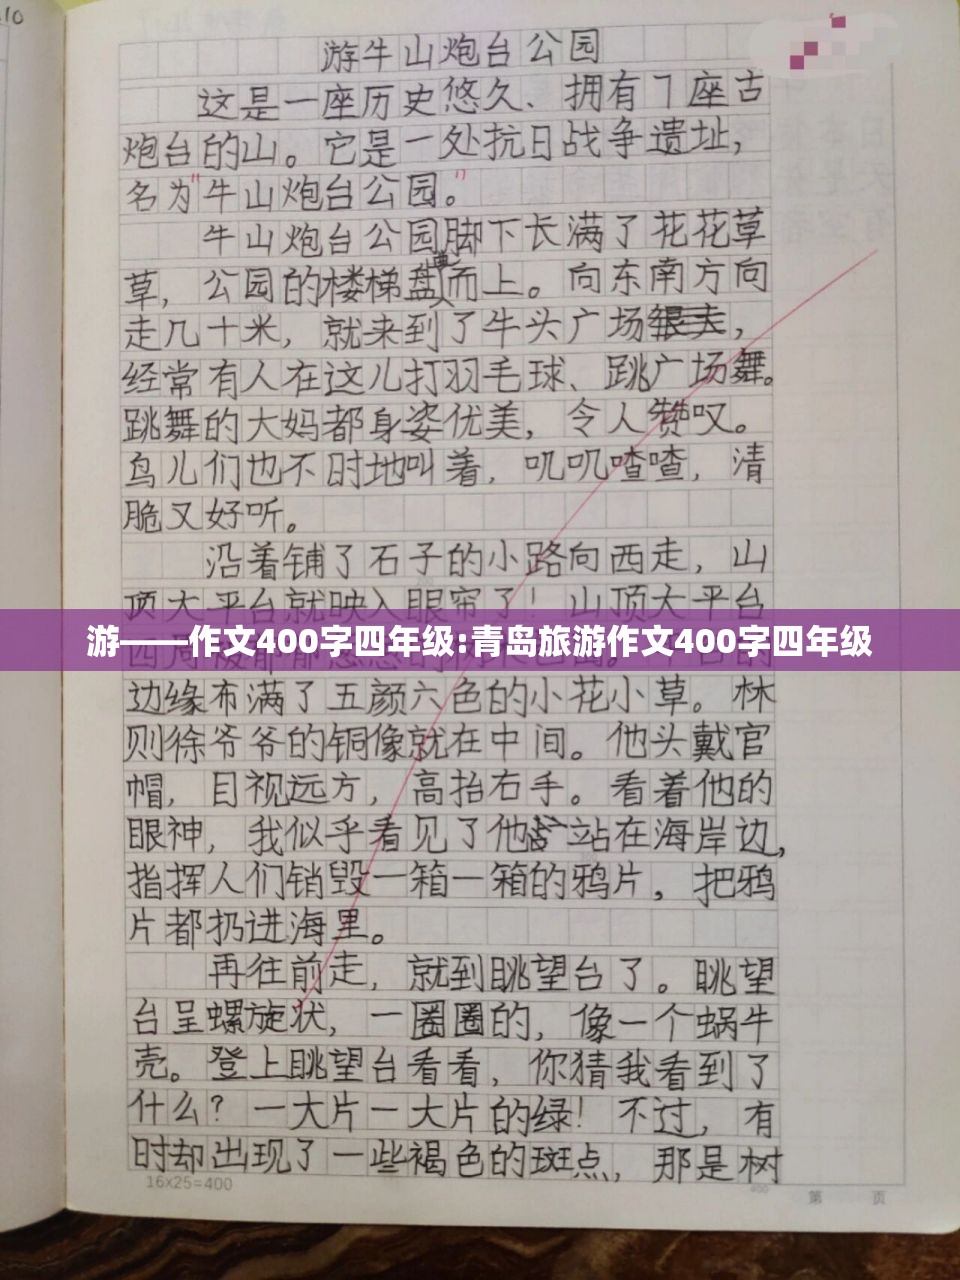 游牛山炮台公园
这是一座历史悠久、拥有7座古
炮台的山。它是一处抗日战争遗址，
名为"牛山炮台公园。"
牛山炮台公园脚下长满了花花草
草，公园的楼梯盘而上。向东南方向
走几十米，就来到了牛头广场，
经常有人在这儿打羽毛球、跳广场舞。
跳舞的大妈都身姿优美，令人赞叹。
鸟儿们也不时地叫着，叽叽喳喳，清
脆又好听。
沿着铺了石子的小路向西走，山
顶大平台就映入眼帘了！山顶大平台
游——作文400字四年级:青岛旅游作文400字四年级
边缘布满了五颜六色的小花小草。林
则徐爷爷的铜像就在中间。他头戴官
帽，目视远方，高抬右手。看着他的
眼神，我似乎看见了他站在海岸边，
指挥人们销毁一箱一箱的鸦片，把鸦
片都扔进海里。
再往前走，就到眺望台了。眺望
台呈螺旋状，一圈圈的，像一个蜗牛
壳。登上眺望台看看，你猜我看到了
什么？一大片一大片的绿！不过，有
时却出现了一些褐色的斑点，那是树
16x25=400
第 页